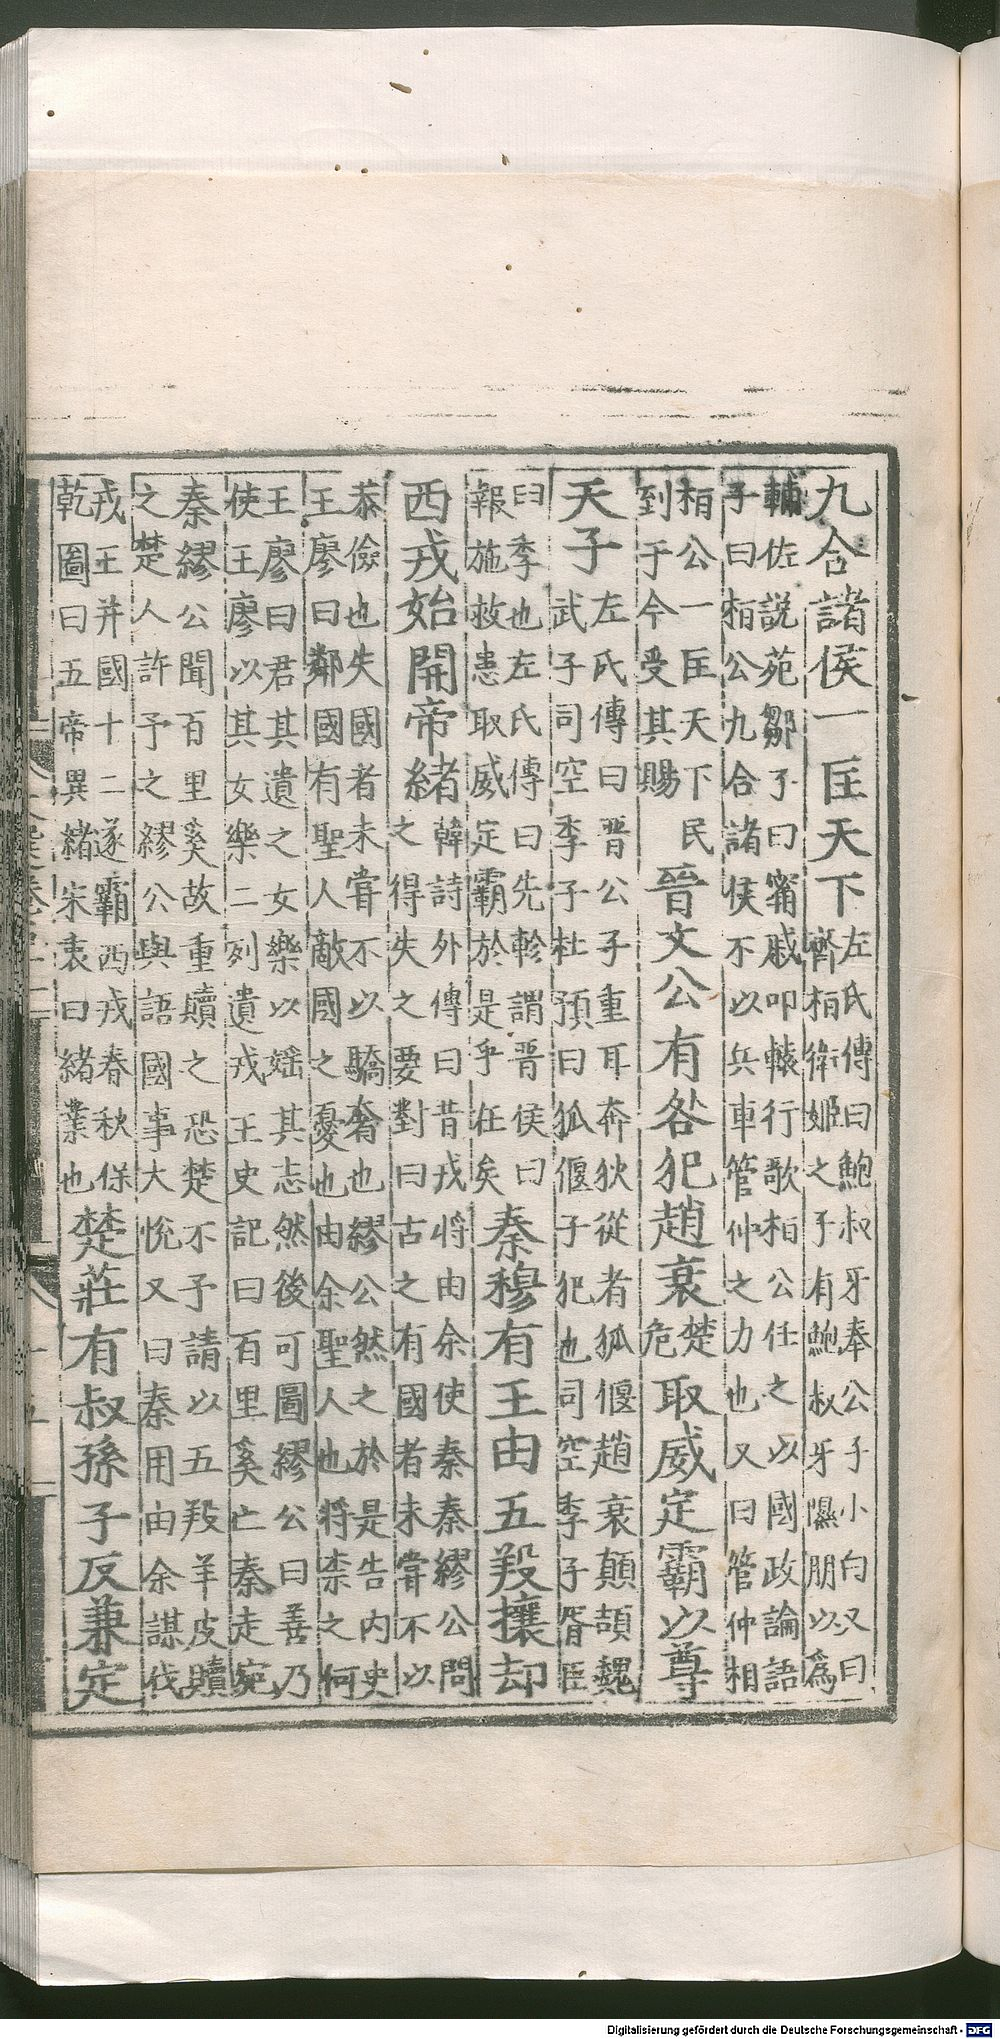 九合諸侯一匡天下左氏傳曰鮑叔牙奉公子小白又曰
齊桓衛姬之子有鮑叔牙隰朋以爲
輔佐說苑鄒子曰甯戚叩轅行歌桓公任之以國政論語
子曰桓公九合諸侯不以兵車管仲之力也又曰管仲相
桓公一匡天下民
到于今受其賜
晉文公有咎犯趙衰
楚
危
取威定霸以尊
天子
左氏傳曰晋公子重耳奔狄從者狐偃趙衰顛頡魏
武子司空季子杜預曰狐偃子犯也司空季子胥臣
臼季也左氏傳曰先軫謂晋侯曰
報施救患取威定霸於是乎在矣
秦穆有王由五羖攘却
西戎始開帝緒
韓詩外傳曰昔戎將由余使秦秦繆公問
之得失之要對曰古之有國者未甞不以
恭儉也失國者未甞不以驕奢也繆公然之於是告内史
王廖曰鄰國有聖人敵國之憂也由余聖人也將柰之何
王廖曰君其遺之女樂以婬其志然後可圖繆公曰善乃
使王廖以其女樂二列遺戎王史記曰百里奚亡秦走宛
秦繆公聞百里奚故重贖之恐楚不予請以五羖羊皮贖
之楚人許予之繆公與語國事大悅又曰秦用由余謀伐
戎王并國十二遂霸西戎春秋保
乾圖曰五帝異緒宋衷曰緒業也
楚莊有叔孫子反兼定
十五
Digitalisierung gefördert durch die Deutsche Forschungsgemeinschaft - DFG